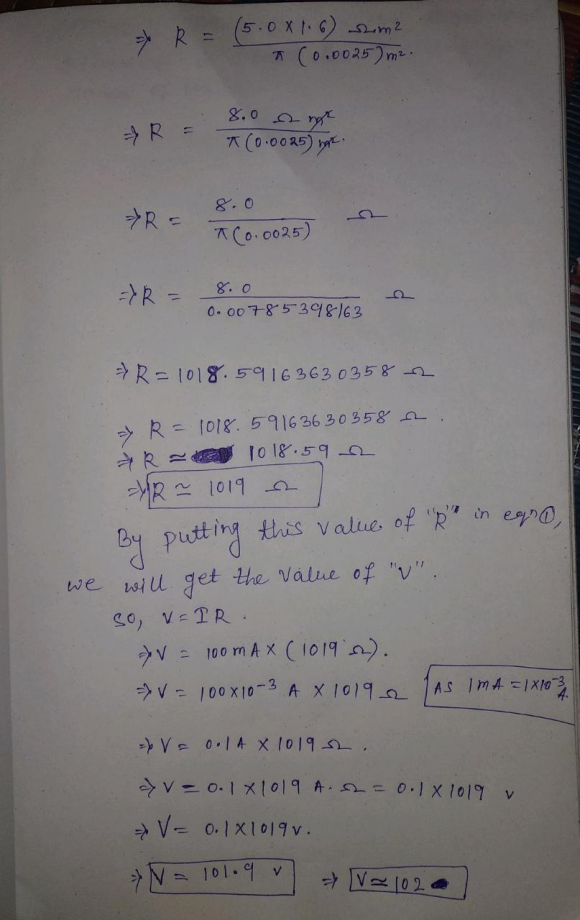 ⇒ R = (5.0 X 1.6) Ωm² / π (0.0025) m².
⇒ R = 8.0 Ω m² / π (0.0025) m².
⇒ R = 8.0 / π (0.0025) Ω
⇒ R = 8.0 / 0.00785398163 Ω
⇒ R = 1018.59163630358 Ω
⇒ R = 1018.59163630358 Ω.
⇒ R ≃ 1018.59 Ω
⇒ R ≃ 1019 Ω
By putting this value of "R" in eqn ①,
we will get the value of "V".
so, V = IR.
⇒ V = 100 mA X (1019 Ω).
⇒ V = 100 X 10⁻³ A X 1019 Ω [AS 1 mA = 1X10⁻³ A.
⇒ V = 0.1 A X 1019 Ω.
⇒ V = 0.1 X 1019 A.Ω = 0.1 X 1019 V
⇒ V = 0.1 X 1019 V.
⇒ V = 101.9 V ⇒ V ≃ 102